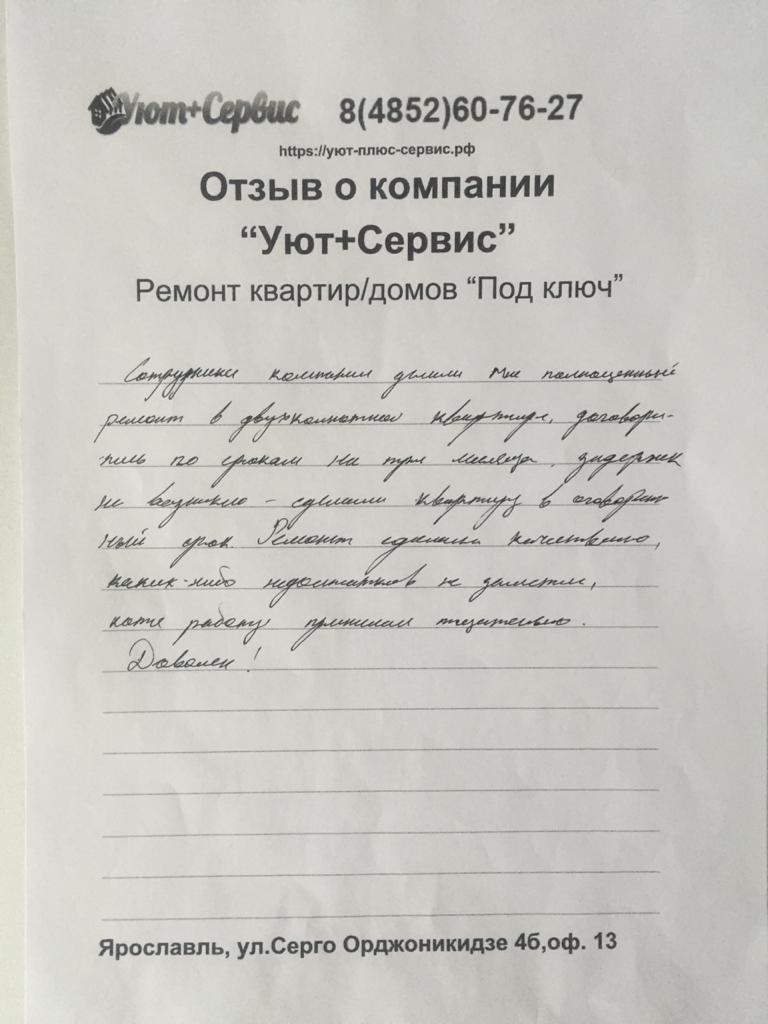 Уют+Сервис 8(4852)60-76-27
https://уют-плюс-сервис.рф
Отзыв о компании
“Уют+Сервис”
Ремонт квартир/домов “Под ключ”
Сотрудники компании делали мне полноценный
ремонт в двухкомнатной квартире, договори-
лись по срокам на три месяца, задержек
не возникло – сделали квартиру в оговорен-
ный срок. Ремонт сделали качественно,
каких-либо недостатков не заметил,
хотя работу принимал тщательно.
Доволен!
Ярославль, ул.Серго Орджоникидзе 4б,оф. 13